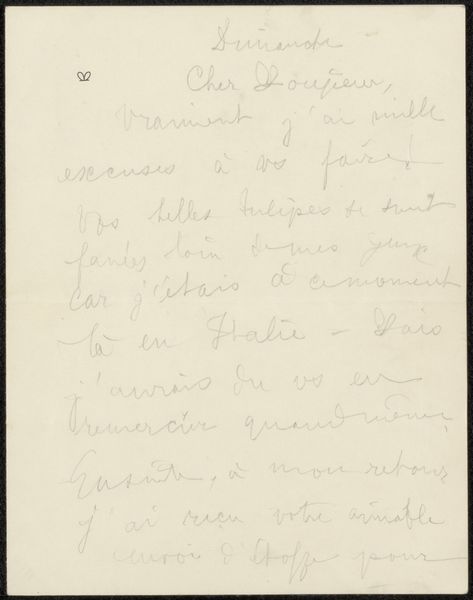 Dimanche
Cher Monsieur,
Vraiment j'ai mille
excuses à vs faire!
Vos belles tulipes se sont
fanées loin de mes yeux
car j'étais à ce moment
là en Italie – Mais
j'aurais du vs en
remercier quand même.
Ensuite, à mon retour
j'ai reçu votre aimable
envoi d'étoffe pour